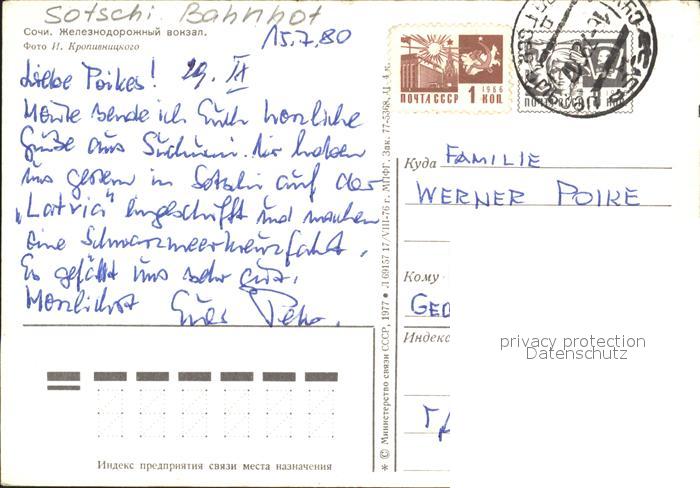 Sotschi Bahnhof
Сочи. Железнодорожный вокзал.
Фото И. Кропивницкого
15.7.80
Liebe Poikes!
Heute sende ich Euch herzliche
Grüße aus Suchumi. Wir haben
uns gestern in Sotschi auf der
„Latvia" eingeschifft und machen
eine Schwarzmeerkreuzfahrt.
Es gefällt uns sehr gut.
Herzlichst Euer Peter.
Индекс предприятия связи места назначения
* © Министерство связи СССР, 1977 ● Л 69157 17/VIII-76 г. МПФГ. Зак. 77-5368. Ц. 4 к.
1966
ПОЧТА СССР 1 КОП
ПОЧТА СССР
КОП
Куда FAMILIE
WERNER POIKE
Кому
GEO
Индекс
privacy protection
Datenschutz